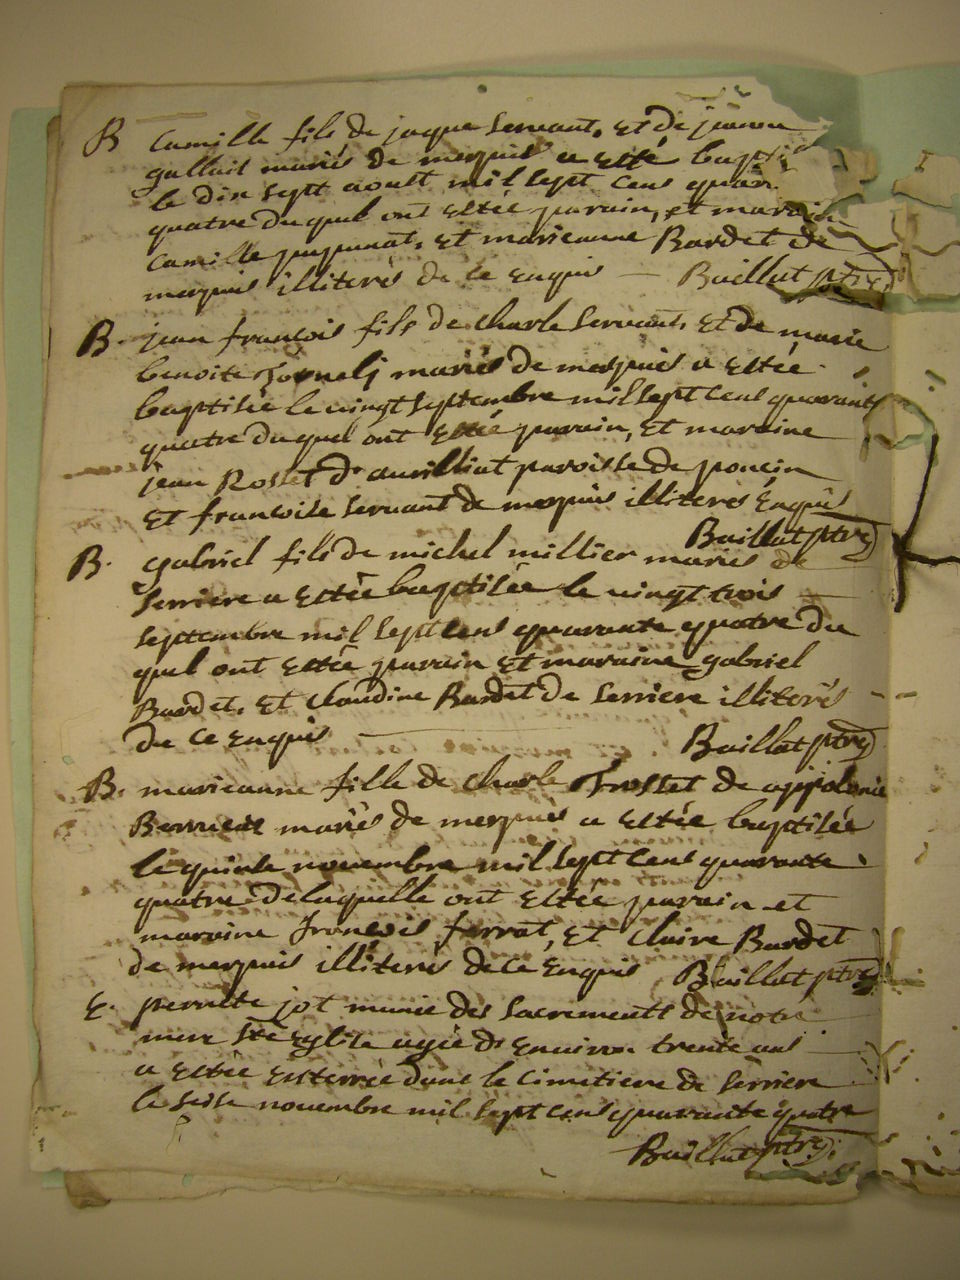 B Camille fils de jaque servant, et de jeanne
gallait mariés de merpuis a esté bapti
le dix sept aoust mil sept cens quar
quatre du quel ont estée parain, et maraine
Camille et marieanne Bardet de
merpuis illiterés de ce enquis — Baillat ptre
B. jean francois fils de charle servant, et de marie
benoite mariés de merpuis a estée
baptisée le vingt septembre mil sept cens quarante
quatre du quel ont estée parain, et maraine
jean Rosset d'aurilliat paroisse de poncin
et francoise servant de merpuis illiterés enquis
Baillat ptre
B. gabriel fils de michel millier mariés de
serriere a estée baptisée le vingt trois
septembre mil sept cens quarante quatre du
quel ont estée parain et maraine gabriel
Bardet, et claudine Bardet de serriere illiterés
de ce enquis — Baillat ptre
B. marieanne fille de charle de appolonie
mariés de merpuis a estée baptisée
le quinse novembre mil sept cens quarante
quatre de laquelle ont estée parain et
maraine francois ferrat, et claire Bardet
de merpuis illiterés de ce enquis Baillat ptre
E. pernette jot munie des sacrements de notre
mere ste eglise agée d'environ trente ans
a estée enterrée dans le cimetiere de serriere
le seise novembre mil sept cens quarante quatre
Baillat ptre